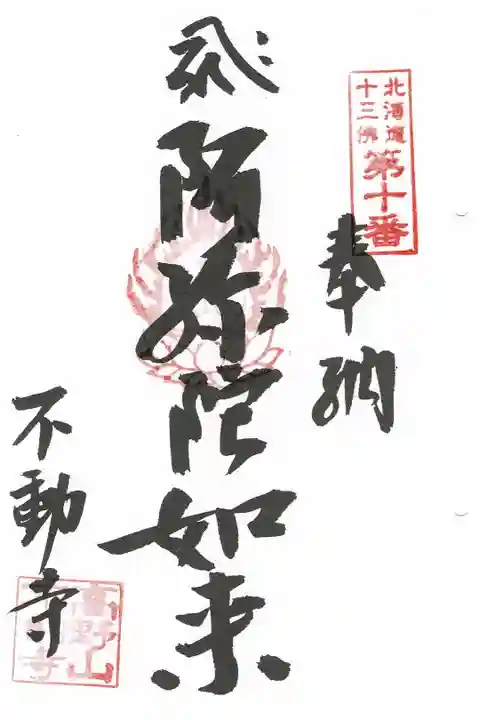 北海道
十三佛
第十番
奉納
阿弥陀如来
不動寺
高野山